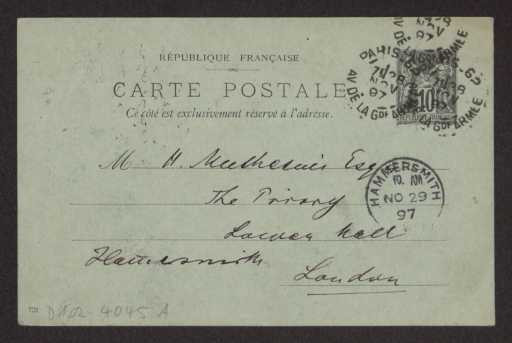 RÉPUBLIQUE FRANÇAISE
CARTE POSTALE
Ce côté est exclusivement réservé à l'adresse.
PARIS
AV DE LA Gde ARMÉE
10
M. H. Muthesius Esq
HAMMERSMITH
NO 29
97
The Priory
Mall
Hammersmith
London
4045 A